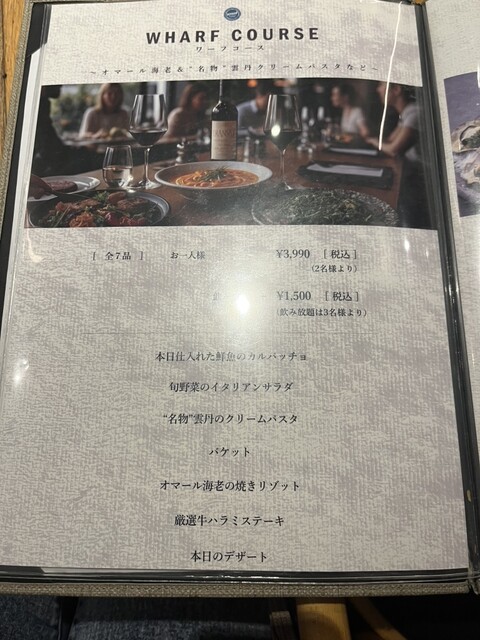 WHARF COURSE
ワーフコース
～オマール海老＆"名物"雲丹クリームパスタなど～
[ 全7品 ] お一人様 ¥3,990 [ 税込 ]
(2名様より)
¥1,500 [ 税込 ]
(飲み放題は3名様より)
本日仕入れた鮮魚のカルパッチョ
旬野菜のイタリアンサラダ
"名物"雲丹のクリームパスタ
バケット
オマール海老の焼きリゾット
厳選牛ハラミステーキ
本日のデザート